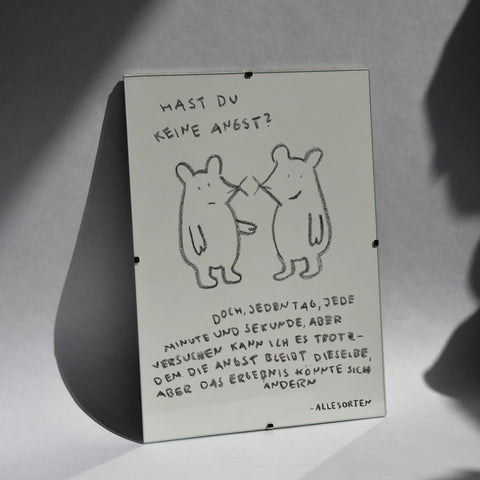 HAST DU
KEINE ANGST?
DOCH, JEDEN TAG, JEDE
MINUTE UND SEKUNDE, ABER
VERSUCHEN KANN ICH ES TROTZ-
DEM DIE ANGST BLEIBT DIESELBE,
ABER DAS ERGEBNIS KÖNNTE SICH
ÄNDERN
-ALLESORTEN